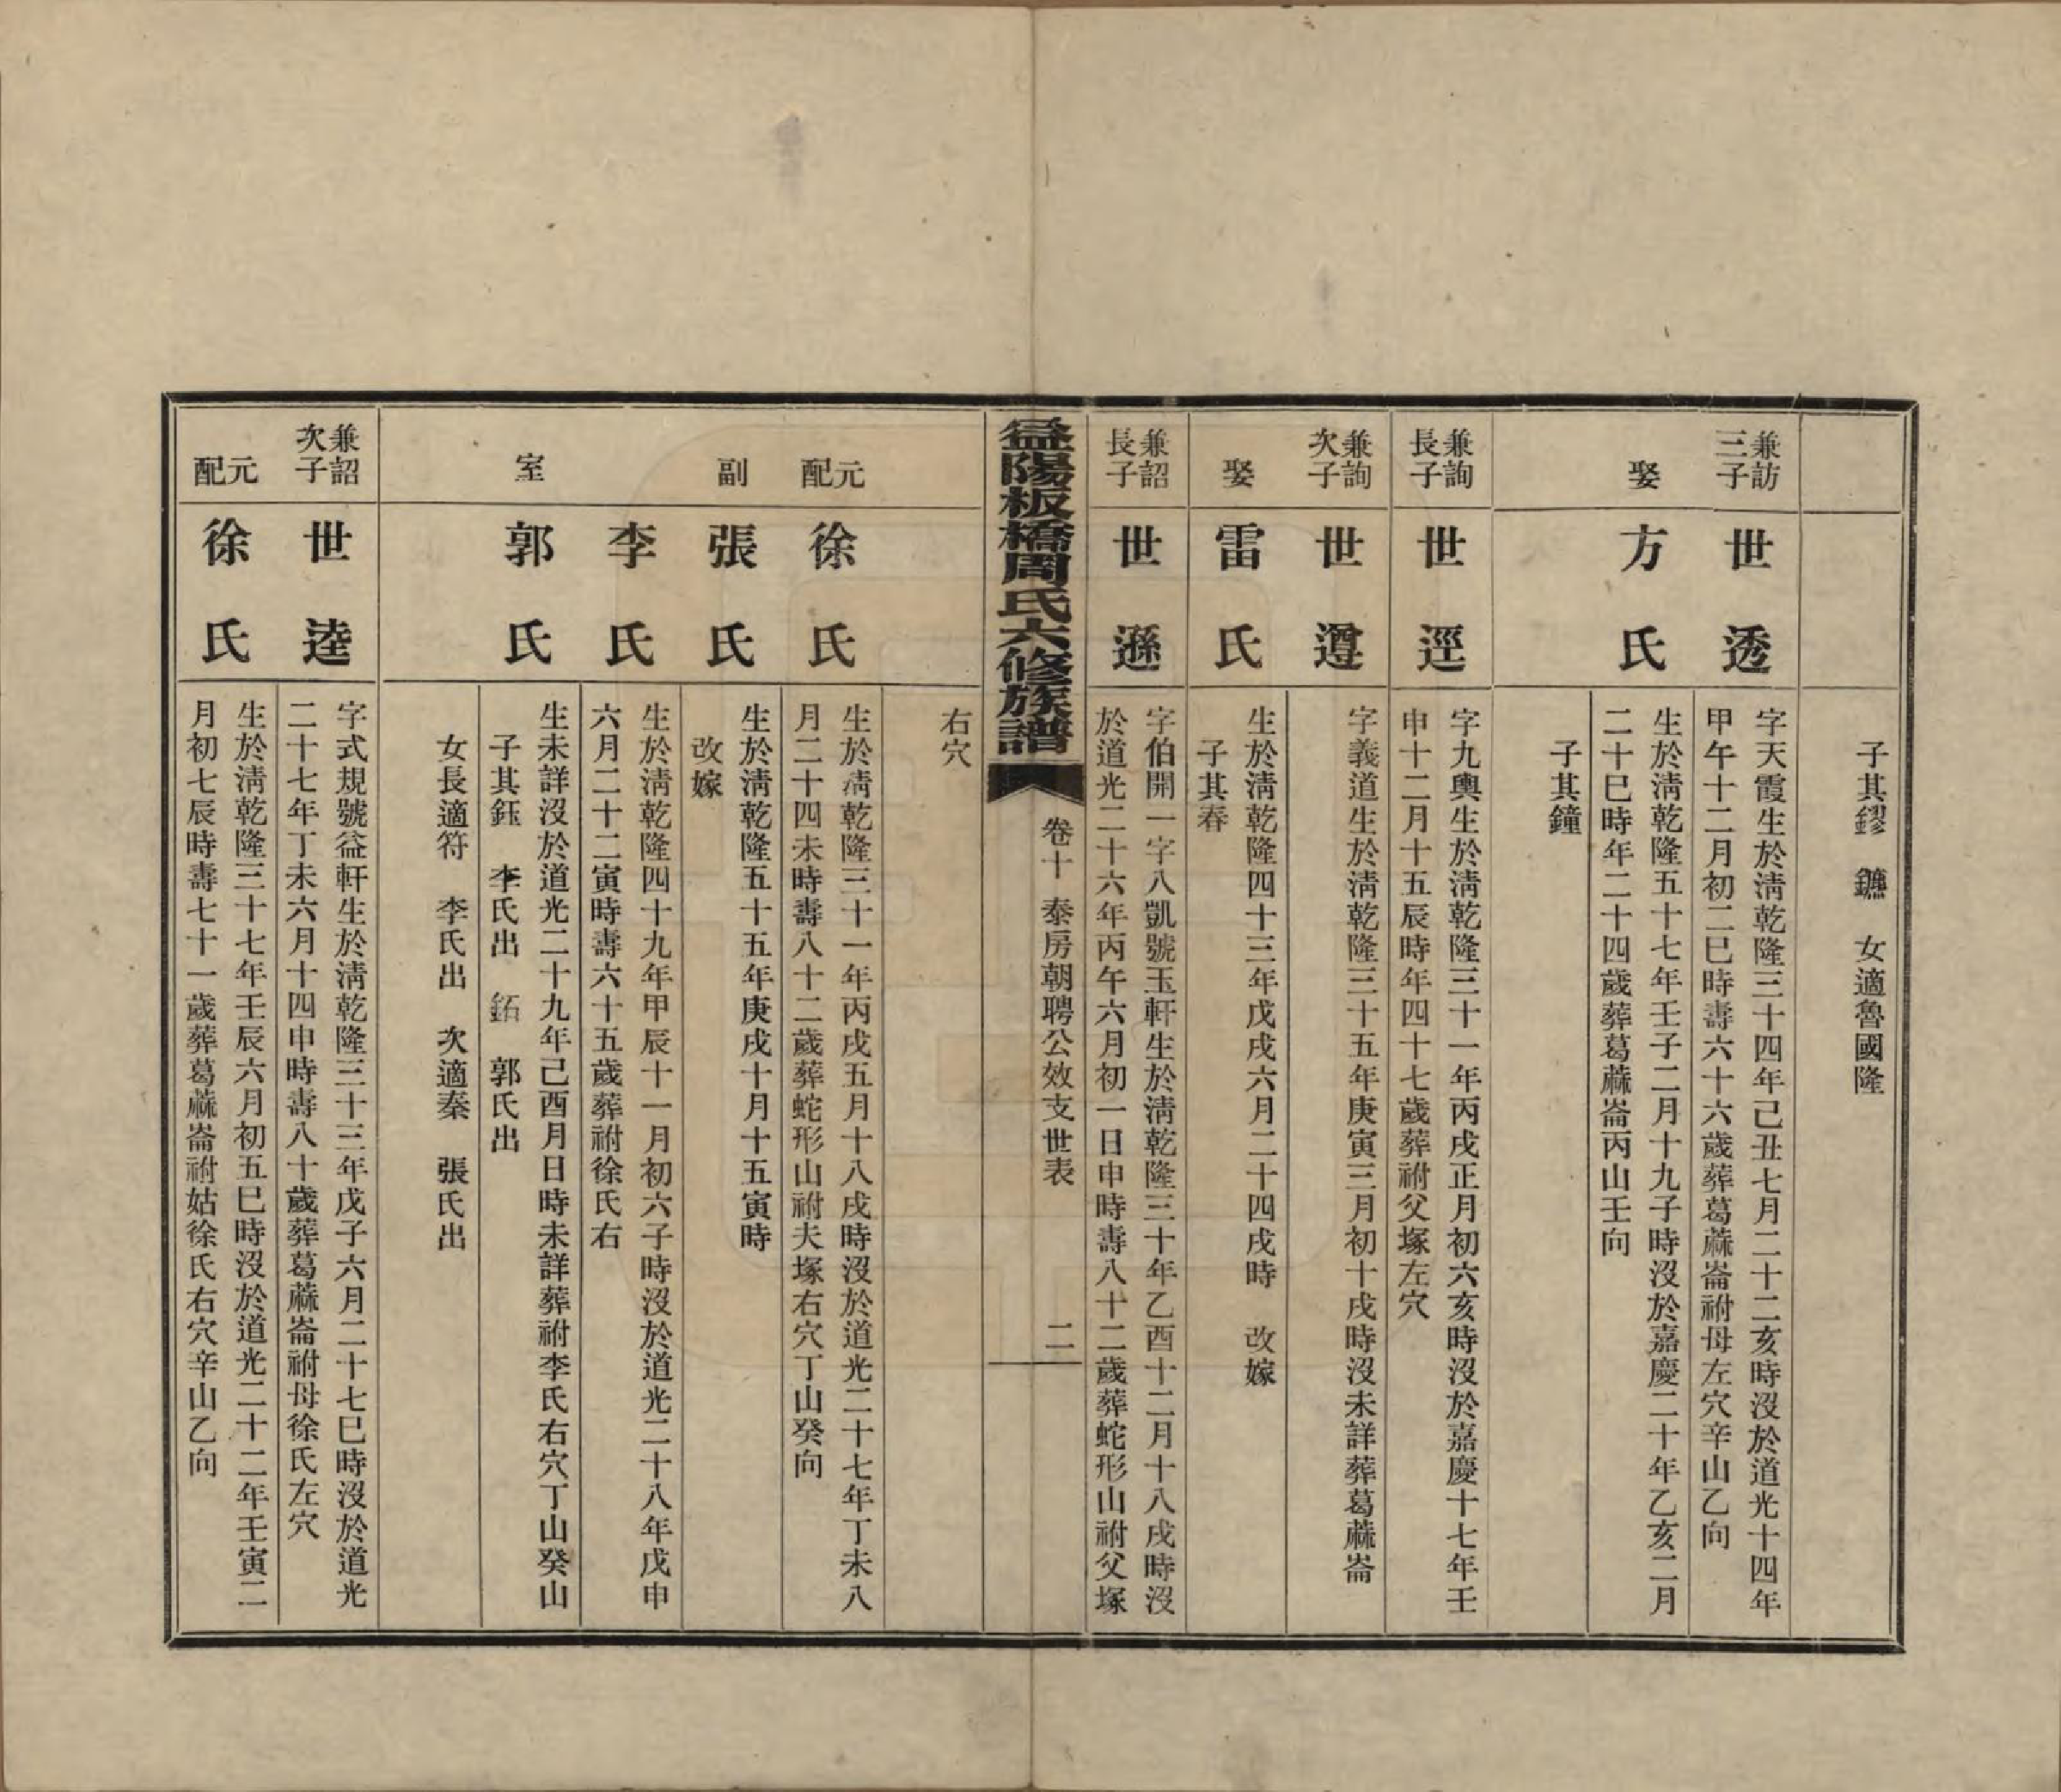 子其鏐　鑣　女適魯國隆
兼訪
三子
世透
字天霞生於淸乾隆三十四年己丑七月二十二亥時沒於道光十四年
甲午十二月初二巳時壽六十六歲葬葛蔴崙祔母左穴辛山乙向
娶
方氏
生於淸乾隆五十七年壬子二月十九子時沒於嘉慶二十年乙亥二月
二十巳時年二十四歲葬葛蔴崙丙山壬向
子其鐘
兼詢
長子
世逕
字九輿生於淸乾隆三十一年丙戌正月初六亥時沒於嘉慶十七年壬
申十二月十五辰時年四十七歲葬祔父塚左穴
兼詢
次子
世遵
字義道生於淸乾隆三十五年庚寅三月初十戌時沒未詳葬葛蔴崙
娶
雷氏
生於淸乾隆四十三年戊戌六月二十四戌時　改嫁
子其春
兼詔
長子
世遜
字伯開一字八凱號玉軒生於淸乾隆三十年乙酉十二月十八戌時沒
於道光二十六年丙午六月初一日申時壽八十二歲葬蛇形山祔父塚
益陽板橋周氏六修族譜
卷十　泰房朝聘公效支世表
二
右穴
元配
徐氏
生於淸乾隆三十一年丙戌五月十八戌時沒於道光二十七年丁未八
月二十四未時壽八十二歲葬蛇形山祔夫塚右穴丁山癸向
副
張氏
生於淸乾隆五十五年庚戌十月十五寅時
改嫁
李氏
生於淸乾隆四十九年甲辰十一月初六子時沒於道光二十八年戊申
六月二十二寅時壽六十五歲葬祔徐氏右
室
郭氏
生未詳沒於道光二十九年己酉月日時未詳葬祔李氏右穴丁山癸山
子其鈺　李氏出　鉐　郭氏出
女長適符　李氏出　次適秦　張氏出
兼詔
次子
世逵
字式規號益軒生於淸乾隆三十三年戊子六月二十七巳時沒於道光
二十七年丁未六月十四申時壽八十歲葬葛蔴崙祔母徐氏左穴
元配
徐氏
生於淸乾隆三十七年壬辰六月初五巳時沒於道光二十二年壬寅二
月初七辰時壽七十一歲葬葛蔴崙祔姑徐氏右穴辛山乙向